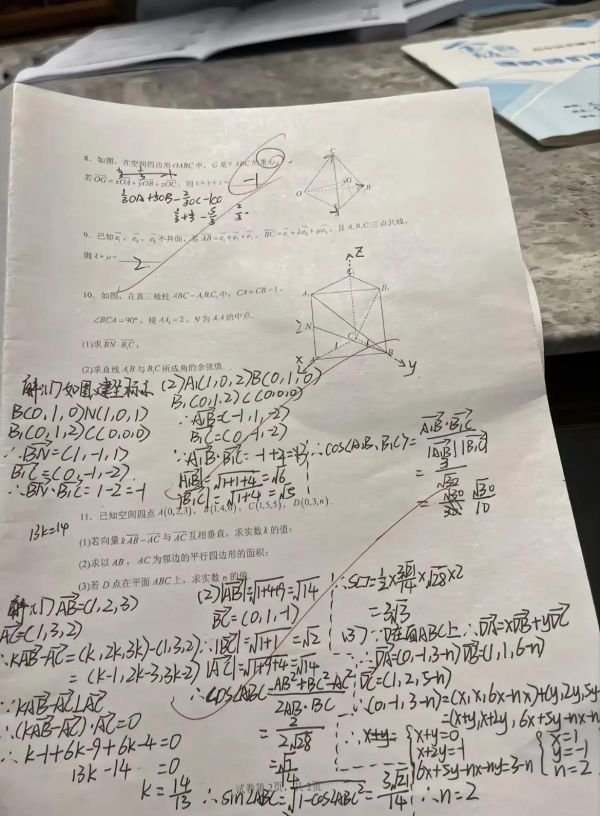 8．如图，在空间四边形OABC中，G是▽ABC的重心，
若OG=xOA+yOB+zOC，则x+y+z=
-1
9．已知e₁，e₂，e₃不共面，若AB=e₁+e₂+e₃，BC=e₁+λe₂+μe₃，且A,B,C三点共线，
则λ+μ= 2
10．如图，在直三棱柱ABC-A₁B₁C₁中，CA=CB=1，
∠BCA=90°，棱AA₁=2，N为A₁A的中点.
(1)求BN·B₁C；
(2)求直线A₁B与B₁C所成角的余弦值.
解:(1)如图建坐标系
B(0,1,0)N(1,0,1)
B₁(0,1,2)C(0,0,0)
∴BN=(1,-1,1)
B₁C=(0,-1,-2)
∴BN·B₁C=1-2=-1
(2)A₁(1,0,2)B(0,1,0)
B₁(0,1,2)C(0,0,0)
∴A₁B=(-1,1,-2)
B₁C=(0,-1,-2)
|A₁B|=√1+1+4=√6
|B₁C|=√1+4=√5
∴cos(A₁B,B₁C)=A₁B·B₁C/|A₁B||B₁C|
=3/√30
=√30/10
13k=14
11．已知空间四点A(0,2,3)，B(1,4,6)，C(1,5,5)，D(0,3,n).
(1)若向量kAB-AC与AC互相垂直，求实数k的值；
(2)求以AB，AC为邻边的平行四边形的面积；
(3)若D点在平面ABC上，求实数n的值.
解:(1)AB=(1,2,3)
AC=(1,3,2)
∴kAB-AC=(k,2k,3k)-(1,3,2)
=(k-1,2k-3,3k-2)
∵kAB-AC⊥AC
∴(kAB-AC)·AC=0
∴k-1+6k-9+6k-4=0
13k-14=0
k=14/13
(2)|AB|=√1+4+9=√14
BC=(0,1,-1)
∴|BC|=√1+1=√2
|AC|=√1+9+4=√14
∴cos∠ABC=AB²+BC²-AC²/2AB·BC
=2/2√28
=√7/14
∴sin∠ABC=√1-cos∠ABC²=3√21/14
∴S▱=½×3√21/14×√28×2
=3√3
(3)∵D在面ABC上∴DA=xDB+yDC
∴DA=(0,-1,3-n)DB=(1,1,6-n)
DC=(1,2,5-n)
∴(0,-1,3-n)=(x,x,6x-nx)+(y,2y,5y-
=(x+y,x+2y,6x+5y-nx-n
x+y=0
x+2y=-1
6x+5y-nx-ny=3-n
x=1
y=-1
n=2
∴n=2
试卷第2页，共2页